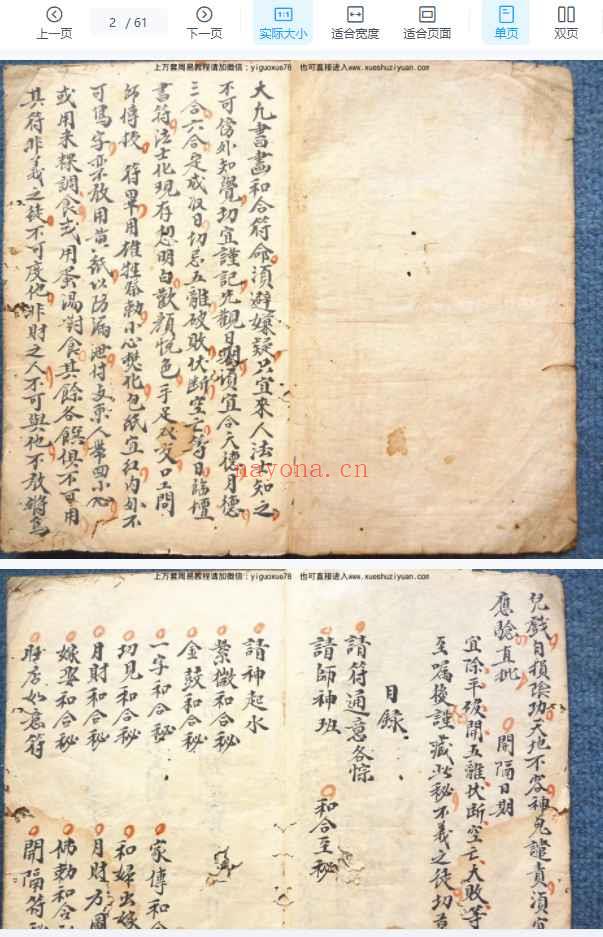 上一页
2 / 61
下一页
实际大小
适合宽度
适合页面
单页
双页
上万套周易教程请加微信:yiguoxue78 也可直接进入www.xueshuziyuan.com
大凡書畫和合符命須避嫌疑只宜來人法士知之
不可傍外知覺切宜謹記先觀日期須宜合天德月德
三合六合定成收日切忌五離破敗伏断空亡等日臨壇
書符法士化現存想明白歡顔悦色手足及父口工問
師傅挍符罡用雄牲祭勅小心焚化包紙宜紅内外不
可寫字亦放用黄紙以防漏泄付与來人帶回小心
或用米粿調食或用蛋湯對食其餘各饌俱不可用
其符非義之徒不可度他非財之人不可與他不放將為
nayona.cn
上万套周易教程请加微信:yiguoxue78 也可直接进入www.xueshuziyuan.com
兒戲自損陰功天地不容神鬼譴責須宜
應驗直批 開隔日期
宜除平破開五離伏断空亡大敗等
至嘱後謹藏此秘不義之徒切莫
目録
請符通意各悰
請師神班 和合至秘
請神起水
紫微和合秘
金鼓和合秘
一字和合 家傳和合
切見和合秘 和婦出嫁
月財和合秘 月財方圓
嫁娶和合秘 佛勅和合
旺店如意符 開隔符秘